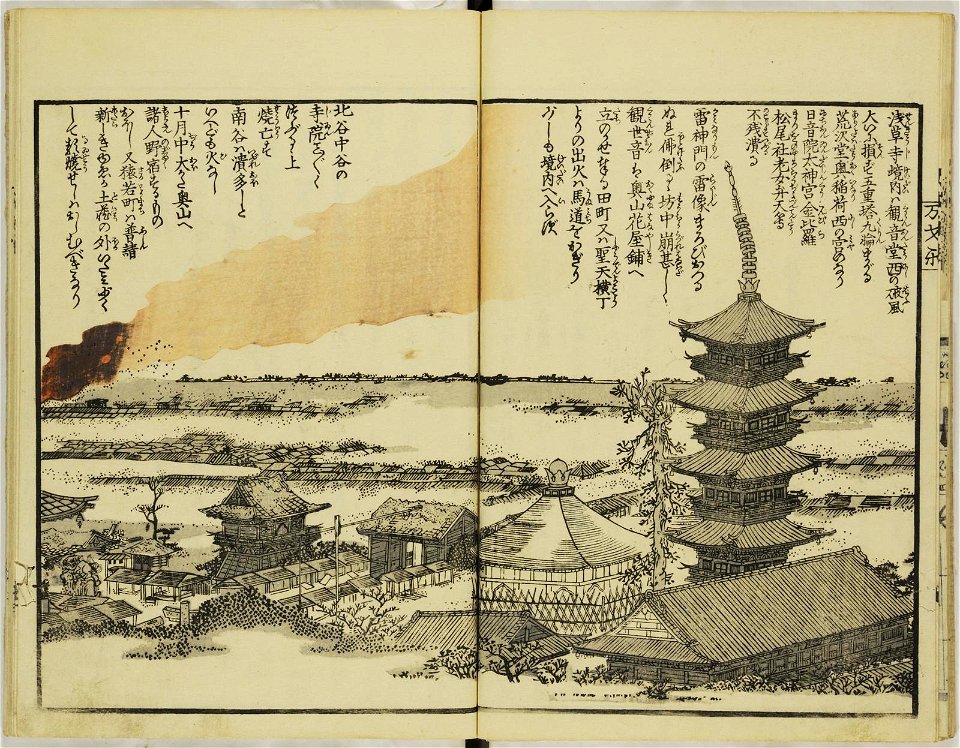 浅草寺境内ハ観音堂西の破風
大いに損じ五重塔九輪まがる
荒沢堂奥稲荷西の宮のやしろ
日音院太神宮金毘羅
松尾社老女弁天等
不残潰る
雷神門の雷像まろびおつる
ぬれ佛倒る坊中崩甚しく
観世音ち奥山花屋鋪へ
立のせ
田町又ハ聖天横丁
よりの出火ハ馬道をかぎり
少しも境内へ入らず
北谷中谷の
寺院
上
焼亡す
南谷ハ潰多しと
いへども火なし
十月中大かた奥山へ
諸人野宿するもの
多し又猿若町ハ普請
新しきゆゑか土蔵の外いたミ少く
して類焼せしハおしむべきなり